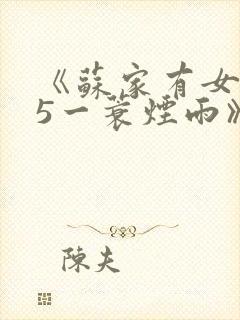 《蘇家有女
5一蓑煙雨》
陳夫